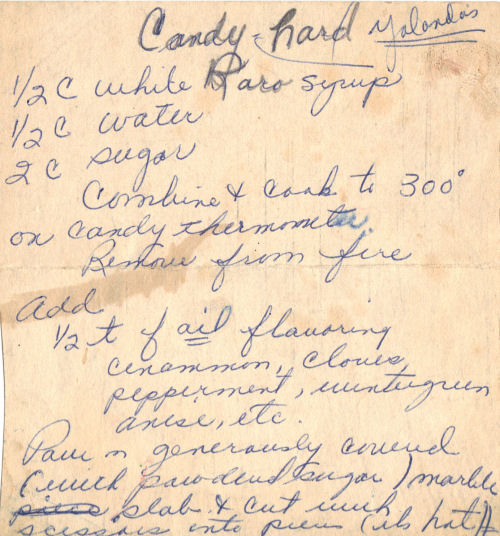 Candy - hard Yolanda's
1/2 C white Karo syrup
1/2 C water
2 C sugar
Combine & cook to 300°
on candy thermometer
Remove from fire
Add
1/2 t of oil flavoring
cinammon, cloves,
peppermint, wintergreen
anise, etc.
Pour on generously covered
(with powdered sugar) marble
slab & cut with
scissors into pieces (its hot)